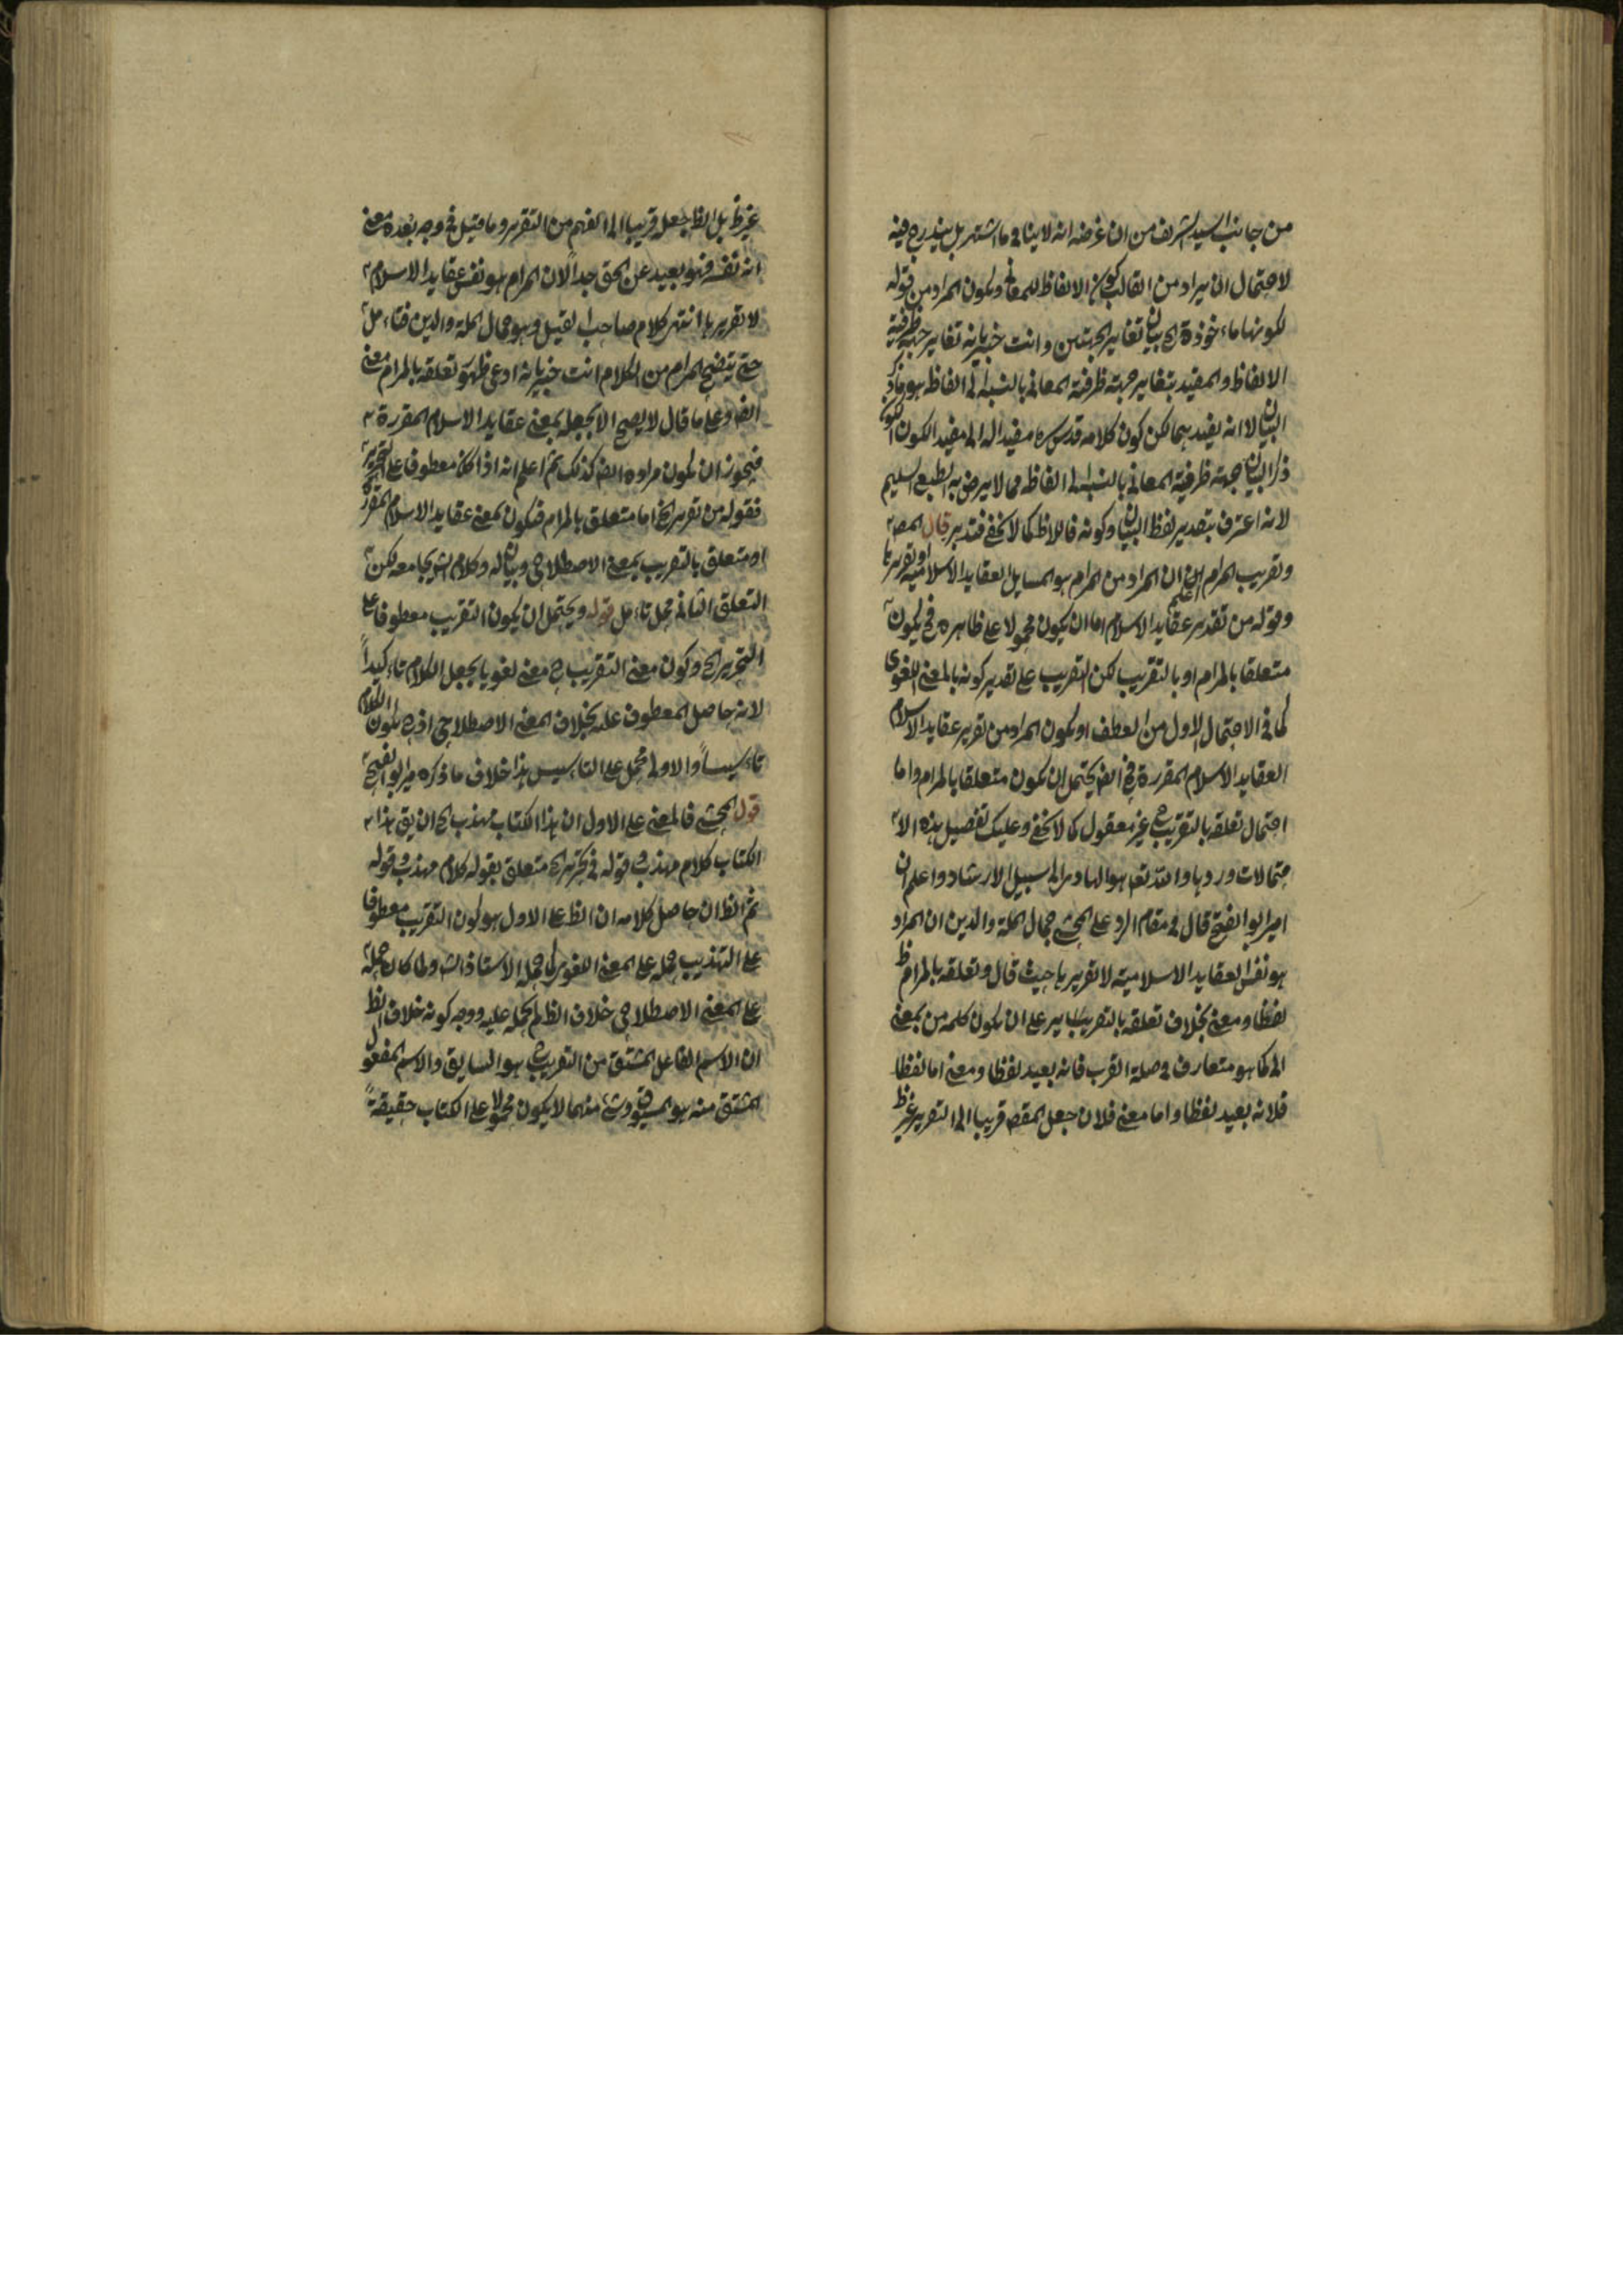 من جانب السيد الشريف من ان غرضه انه لا ينافى ما اشتهر بل يندرج فيه
لاحتمال ان يراد من القالب كون الالفاظ للمعانى ويكون المراد من قوله
لكونها ماءخوذة الخ بيان تغاير الجهتين وانت خبير بانه تغاير جهة ظرفية
الالفاظ والمفيد بتغاير جهته ظرفية المعانى بالنسبة الى الفاظ هو ما ذكر
البيان لا انه يفيد بهما لكن كون كلامه قدس سره مفيدا له الى مفيد الكون
ذكر البيان جهة ظرفية المعانى بالنسبة الى الفاظ مما لا يرض به الطبع السليم
لانه اعترف بتقدير لفظ البيان وكونه كما لا يخفى فتدبر قال المصـ
وتقريب المرام الخ اعلم ان المراد من المرام هو المسايل العقايد الاسلامية او تقريرها
وقوله من تقدير عقايد الاسلام اما ان يكون محمولا على ظاهره فح يكون
متعلقا بالمرام او بالتقريب لكن التقريب على تقدير كونه بالمعنى اللغوى
كما فى الاحتمال الاول من العطف او يكون المراد من تقرير عقايد الاسلام
العقايد الاسلام المقررة فح ايض يحتمل ان يكون متعلقا بالمرام واما
احتمال تعلقه بالتقريب ح غير معقول كما لا يخفى وعليك تفصيل هذه الا
حتمالات وردها والله تعـ هو الهادى الى سبيل الارشاد واعلم ان
امير ابو الفتح قال فى مقام الرد على المحشى جمال الملة والدين ان المراد
هو نفس العقايد الاسلامية لا تقريرها حيث قال وتعلقه بالمرام ظ
لفظا ومعنى بخلاف تعلقه بالتقريب على ان يكون كلمة من بمعنى
الى كما هو متعارف فى صلة القرب فانه بعيد لفظا ومعنى اما لفظا
فلانه بعيد لفظا واما معنى فلان جعل المقصـ قريبا الى التقرير غير ظ
غير ظ بل الظ جعله قريبا الى الفهم من التقرير وما قيل فى وجه بعده معنى
انه نفسه فهو بعيد عن الحق جدا لان المرام هو نفس عقايد الاسلام
لا تقريرها انتهر كلام صاحب القيل وهو جمال الملة والدين فتاءمل
حتى يتضح المرام من الكلام انت خبير بانه ادعى ظهور تعلقه بالمرام معنى
ايض وعلى ما قال لا يصح الا بجعله بمعنى عقايد الاسلام المقررة
فيجوز ان يكون مراده ايض كذلك ثم اعلم انه اذا كان معطوفا على التحرير
فقوله من تقرير الخ اما متعلق بالمرام فيكون بمعنى عقايد الاسلام المقررة
او متعلق بالتقريب بمعنى الاصطلاحى وبيان له وكلام الش يجامعه لكن
التعلق الثانى محل تاءمل قوله ويحتمل ان يكون التقريب معطوفا على
التحرير الخ وكون معنى التقريب ح معنى لغويا يجعل الكلام تاءكيدا
لانه حاصل المعطوف عليه بخلاف المعنى الاصطلاحى اذ ح يكون الكلام
تاءسيسا والاولى محمل على التاءسيس هذا خلاف ما ذكره مير ابو الفتح
قول المحشى فالمعنى على الاول ان هذا الكتاب مهذب الخ ان يق هذا
الكتاب كلام مهذب قوله فى تحرير الخ متعلق بقوله كلام مهذب قوله
ثم الظ ان حاصل كلامه ان الظ على الاول هو كون التقريب معطوفا
على التهذيب حمله على المعنى اللغوى كما حمله الاستاذ الش ولما كان حمله
على المعنى الاصطلاحى خلاف الظ لم يحمله عليه ووجه كونه خلاف الظ
ان الاسم الفاعل المشتق من التقريب هو السايق والاسم المفعول
المشتق منه هو المسوق وشئ منهما لا يكون محمولا على الكتاب حقيقة